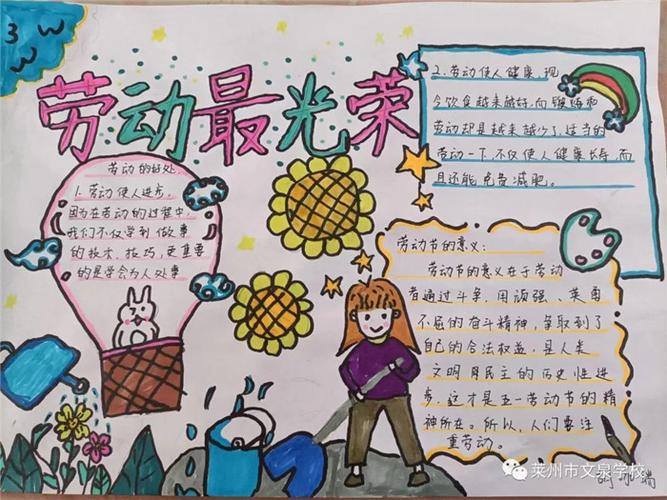 3
W
劳动最光荣
劳动的好处
1.劳动使人进步.
因为在劳动的过程中,
我们不仅学到做事
的技术、技巧,更重要
的是学会为人处事
2.劳动使人健康,现
今饮食越来越好,而锻炼和
劳动却是越来越少了,适当的
劳动一下,不仅使人健康长寿,而
且还能免费减肥。
劳动节的意义:
劳动节的意义在于劳动
者通过斗争,用顽强、英勇
不屈的奋斗精神,争取到了
自己的合法权益,是人类
文明民主的历史性进
步,这才是五一劳动节的精
神所在。所以,人们要注
重劳动。
莱州市文泉学校